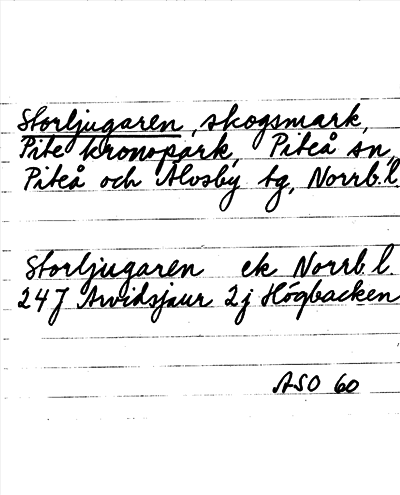 Storljugaren, skogsmark,
Pite kronopark, Piteå sn,
Piteå och Älvsby tg, Norrb. l.
Storljugaren ek Norrb. l.
24J Arvidsjaur 2j Högbacken
ASO 60